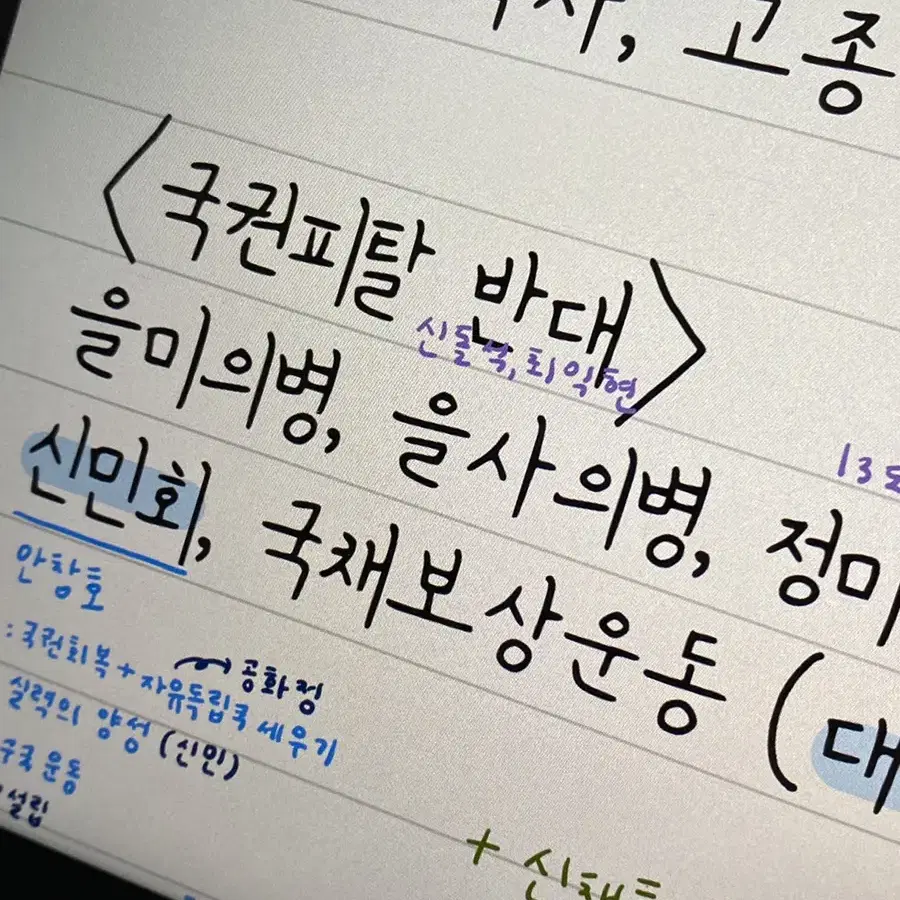 고종
<국권피탈 반대>
신돌석, 최익현
을미의병, 을사의병, 정미
13도
신민회, 국채보상운동 (대
안창호
: 국권회복 + 자유독립국 세우기
→ 공화정
실력의 양성 (신민)
구국 운동
설립
+ 신채호